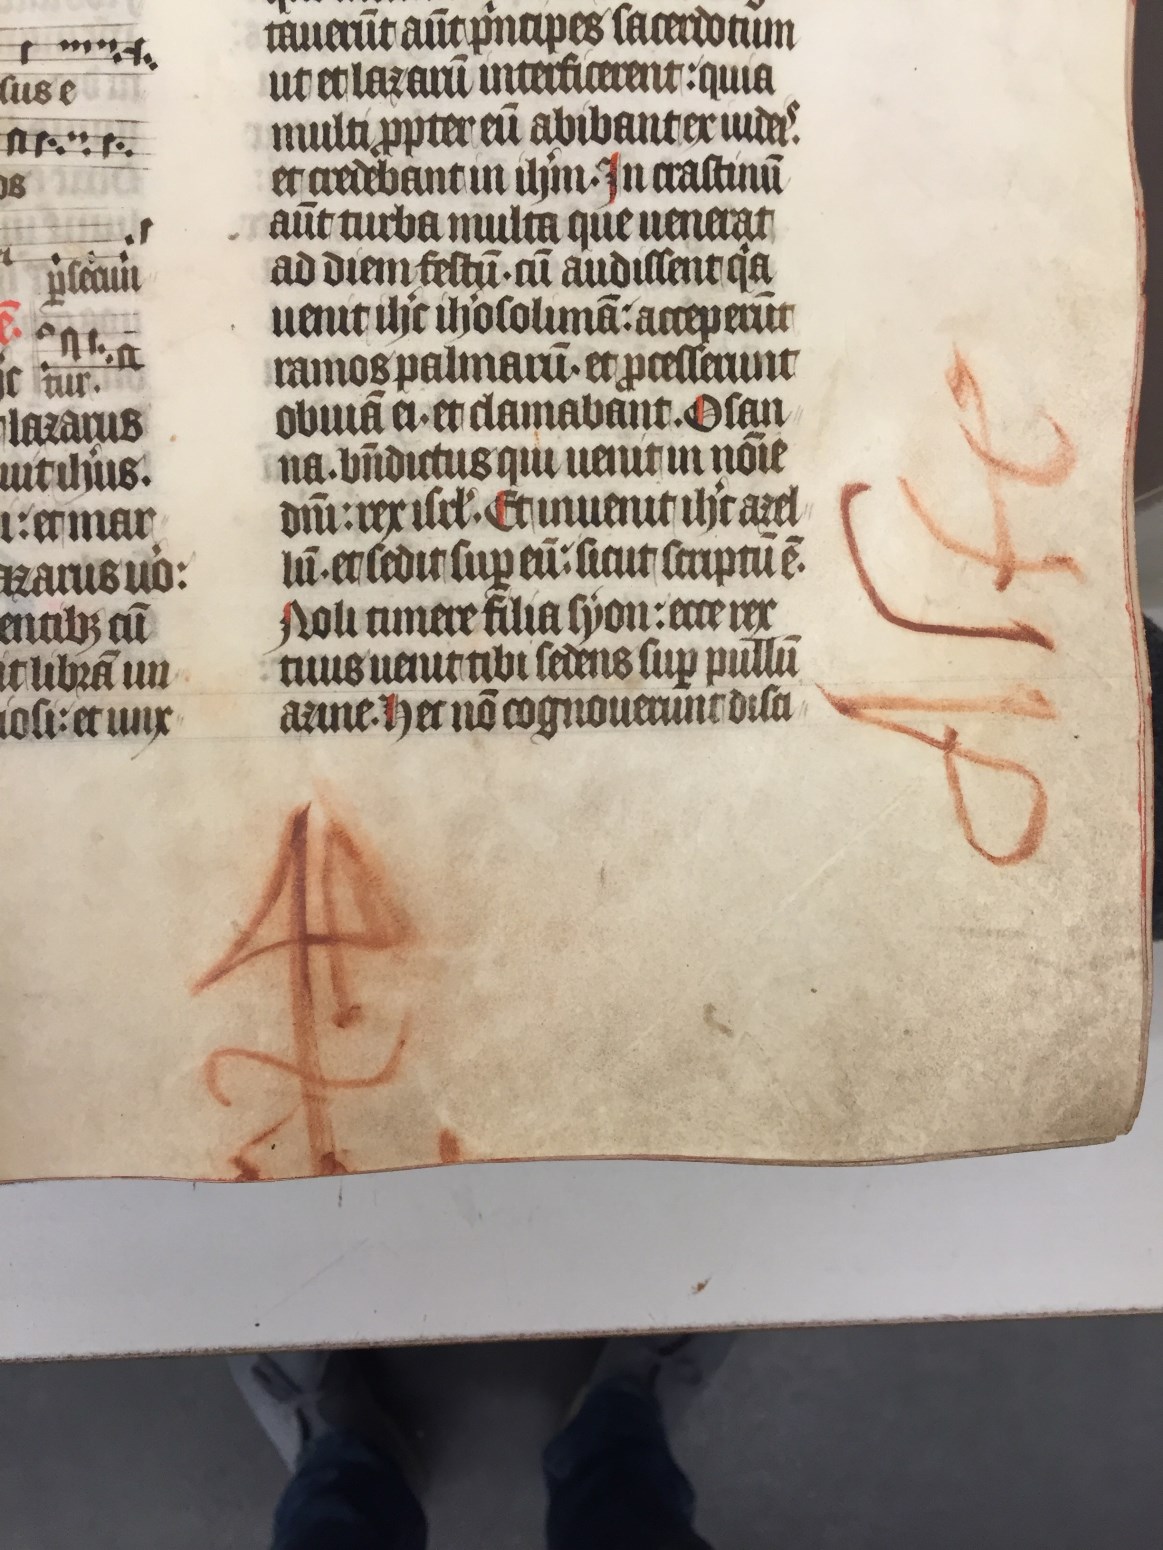 sus e
os
p̱secuu
ē.
ic tur.
lazarus
uit ih'us.
i: et mar
azarus uo:
entibꝫ cū
it librā un
iosi: et unx
tauerūt aūt pⁱncipes sacerdotum
ut et lazarū interficerent: quia
multi ꝓpter eū abibant ex iudeis.
et credebant in ihm̄. In crastinū
aūt turba multa que uenerat
ad diem festū. cū audissent qⁱa
uenit ih̄c ih̓osolimā: acceperūt
ramos palmarū. et ꝓcesserunt
obuiā ei. et clamabant. Osan
na. bn̄dictus qui uenit in nōie
dn̄i: rex isrl̓. Et inuenit ih̄c azel
lū. et sedit sup̱ eū: sicut scriptū ē.
Noli timere filia syon: ecce rex
tuus uenit tibi sedens sup̱ pullū
azine. Hec nō cognouerunt disci